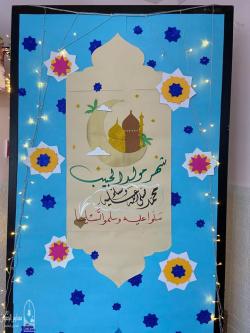 شهر مولد الحبيب
محمد صلى الله عليه وسلم
صلوا عليه وسلموا تسليما